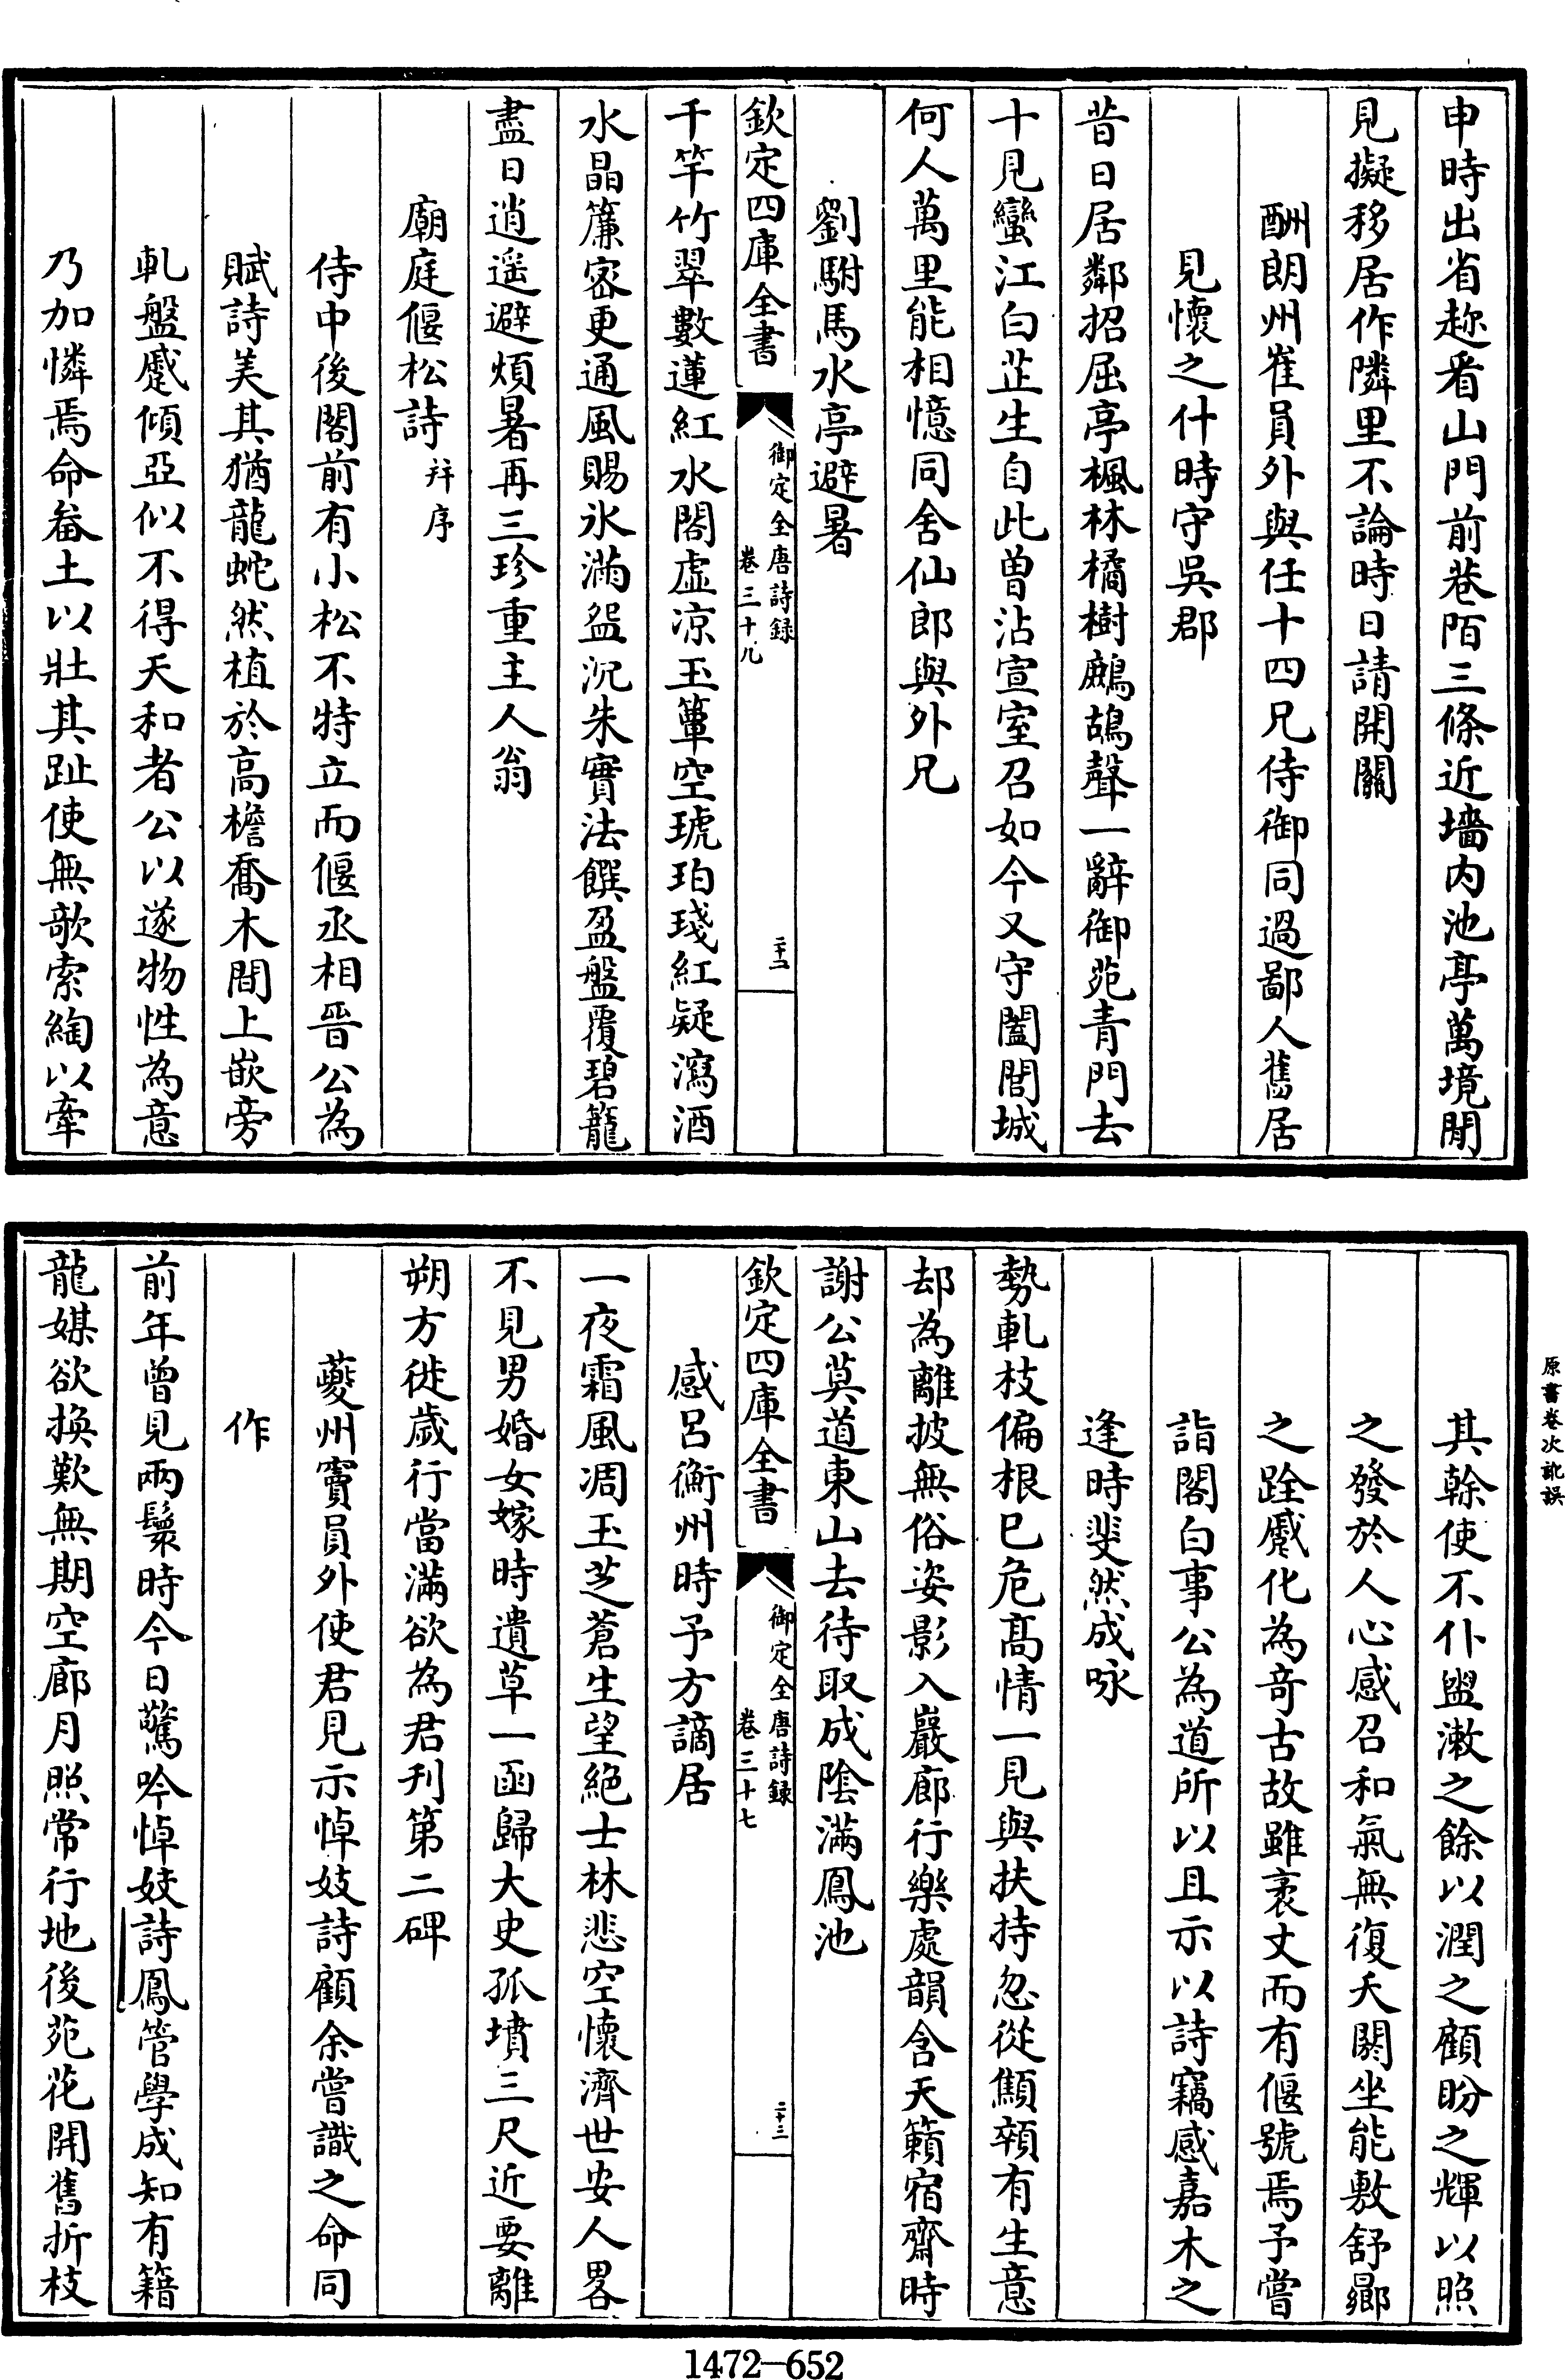 申時出省趂看山門前巷陌三條近墻内池亭萬境閒
見擬移居作隣里不論時日請開關
酬朗州崔員外與任十四兄侍御同過鄙人舊居
見懷之什時守吳郡
昔日居鄰招屈亭楓林橘樹鷓鴣聲一辭御苑青門去
十見蠻江白芷生自此曽沾宣室召如今又守闔閭城
何人萬里能相憶同舍仙郎與外兄
劉駙馬水亭避暑
欽定四庫全書
御定全唐詩録
卷三十九
二十二
千竿竹翠數蓮紅水閣虛凉玉簟空琥珀琖紅疑瀉酒
水晶簾宻更通風賜氷滿盌沉朱實法饌盈盤覆碧籠
盡日逍遥避煩暑再三珍重主人翁
廟庭偃松詩
并序
侍中後閣前有小松不特立而偃丞相晉公為
賦詩美其猶龍蛇然植於高檐喬木間上嵌旁
軋盤蹙傾亞似不得天和者公以遂物性為意
乃加憐焉命畚土以壯其趾使無欹索綯以牽
原書卷次訛誤
其榦使不仆盥漱之餘以潤之顧盼之輝以照
之發於人心感召和氣無復夭閼坐能敷舒曏
之跧蹙化為竒古故雖袤丈而有偃號焉予嘗
詣閣白事公為道所以且示以詩竊感嘉木之
逢時斐然成咏
勢軋枝偏根已危高情一見與扶持忽從顦顇有生意
却為離披無俗姿影入巖廊行樂處韻含天籟宿齋時
謝公莫道東山去待取成隂滿鳳池
欽定四庫全書
御定全唐詩録
卷三十七
二十三
感呂衡州時予方謫居
一夜霜風凋玉芝蒼生望絶士林悲空懷濟世安人畧
不見男婚女嫁時遺草一函歸大史孤墳三尺近要離
朔方徙歲行當滿欲為君刊第二碑
夔州竇員外使君見示悼妓詩顧余嘗識之命同
作
前年曾見兩鬟時今日驚吟悼妓詩鳳管學成知有籍
龍媒欲换歎無期空廊月照常行地後苑花開舊折枝
1472—652